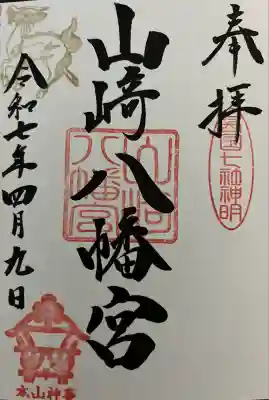 奉拝
七社神明
山﨑八幡宮
山﨑八幡宮
令和七年四月九日
本山神事